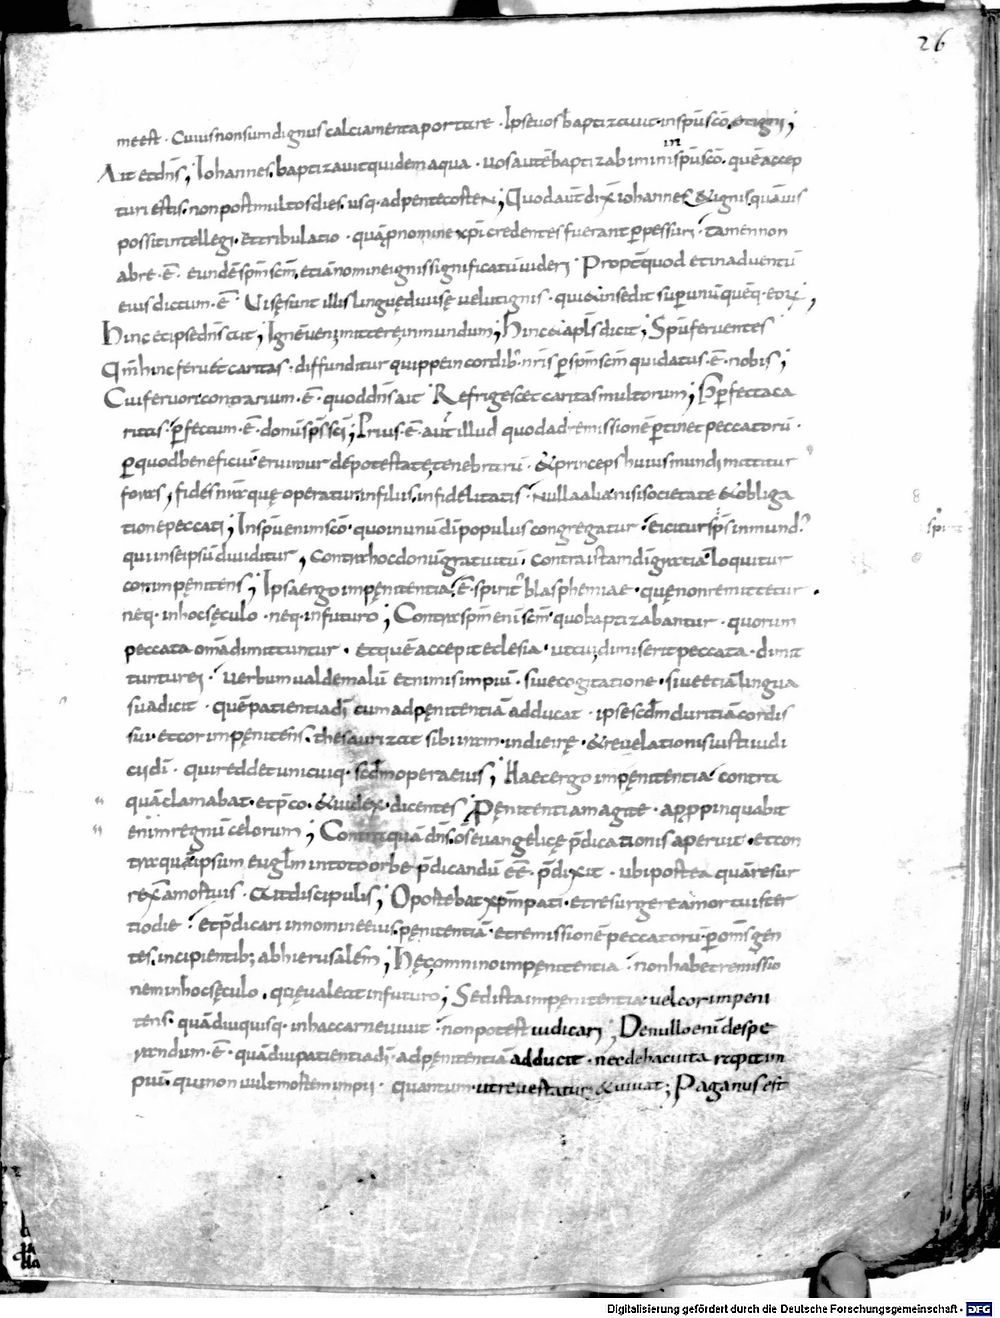 26
me est · Cuius non sum dignus calciamenta portare · Ipse uos baptizauit in spū scō et igni;
Ait et dn̄s; Iohannes baptizauit quidem aqua · uos autē baptizabimini in spū scō · quē accep
turi estis · non post multos dies · usq · ad pentecosten; Quod aut̄ dix̄ iohannes & igni · quāuis
possit intellegi · et tribulatio · quā p nomine xp̄i credentes fuerant ꝑpessuri · tamen non
ab re · ē · eundē spm̄ scm̄ · etiā nomine ignis significatū uideri · Propt̄ quod et in aduentu
eius dictum · ē · Uisę sunt illis linguę diuisę uelut ignis · qui & insedit suꝑ unū quēq · eorum;
Hinc et ipse dn̄s ait; Ignē ueni mittere in mundum; Hinc & apl̄s dicit; Spū feruentes
Qm̄ hinc feruet caritas · diffunditur quippe in cordib · nr̄is ꝑ spm̄ scm̄ qui datus · ē · nobis;
Cui feruori contrarium · ē · quod dn̄s ait · Refrigescet caritas multorum; Perfecta ca
ritas · ꝑfectum · ē · donū sp̄s sc̄i; Prius · ē · aut̄ illud quod ad remissionē ꝑtinet peccatorū ·
ꝑ quod beneficiū eruimur de potestate tenebrarū · & princeps huius mundi mittitur
foras; fide nr̄a quę operatur in filiis infidelitatis · Nulla alia nisi societate & obliga
tione peccati; In spū enim scō · quo in unū dī populus congregatur · eicitur sp̄s inmund
qui in se ipsū diuiditur; Contra hoc donū gratuitū · contra istam dī gratiā loquitur
cor inpenitens; Ipsa ergo impenitentia · ē · spirit blasphemiae · quę non remittetur ·
neq · in hoc sęculo · neq · in futuro; Contra spm̄ enī scm̄ · quo baptizabantur · quorum
peccata om̄a dimittuntur · et quē accepit eclesia · ut cui dimiserit peccata · dimit
tuntur ei · uerbum ualde malū et nimis impiū · siue cogitatione · siue etiā lingua
sua dicit · quē patientia dī cum ad pęnitentiā adducat · ipse scdm̄ duritiā cordis
sui · et cor impęnitens · thesaurizat sibi iram · in die irę · & reuelationis iusti iudi
cii dī · qui reddet unicuiq · scdm̄ opera eius; Haec ergo impęnitentia contra
quā clamabat · et pręco · & iudex · dicentes; Pęnitentiam agite · appropinquabit
enim regnū celorum; Contra quā dn̄s os euangelicę p̄dicationis aperuit · et con
tra quā ipsum eugl̄m in toto orbe p̄dicandū eē p̄dixit · ubi postea quā resur
rex̄ a mortuis · & ait discipulis; Oportebat xp̄m pati · et resurgere a mortuis ter
tio die · et p̄dicari in nomine eius pęnitentiā · et remissionē peccatorū ꝑ om̄s gen
tes · incipientib; ab hierusalem; Hęc omnino impęnitentia · non habet remissio
nem in hoc sęculo · quę ualeat in futuro; Sed ista impęnitentia uel cor impeni
tens · quā diu quisq · in hac carne uiuit · non potest iudicari; De nullo enī despe
randum · ē · quā diu patientia dī · ad pęnitentiā adducit · nec de hac uita rapit im
piū · qui non uult mortem impii · quantum · ut reuertatur & uiuat; Paganus est
Digitalisierung gefördert durch die Deutsche Forschungsgemeinschaft - DFG